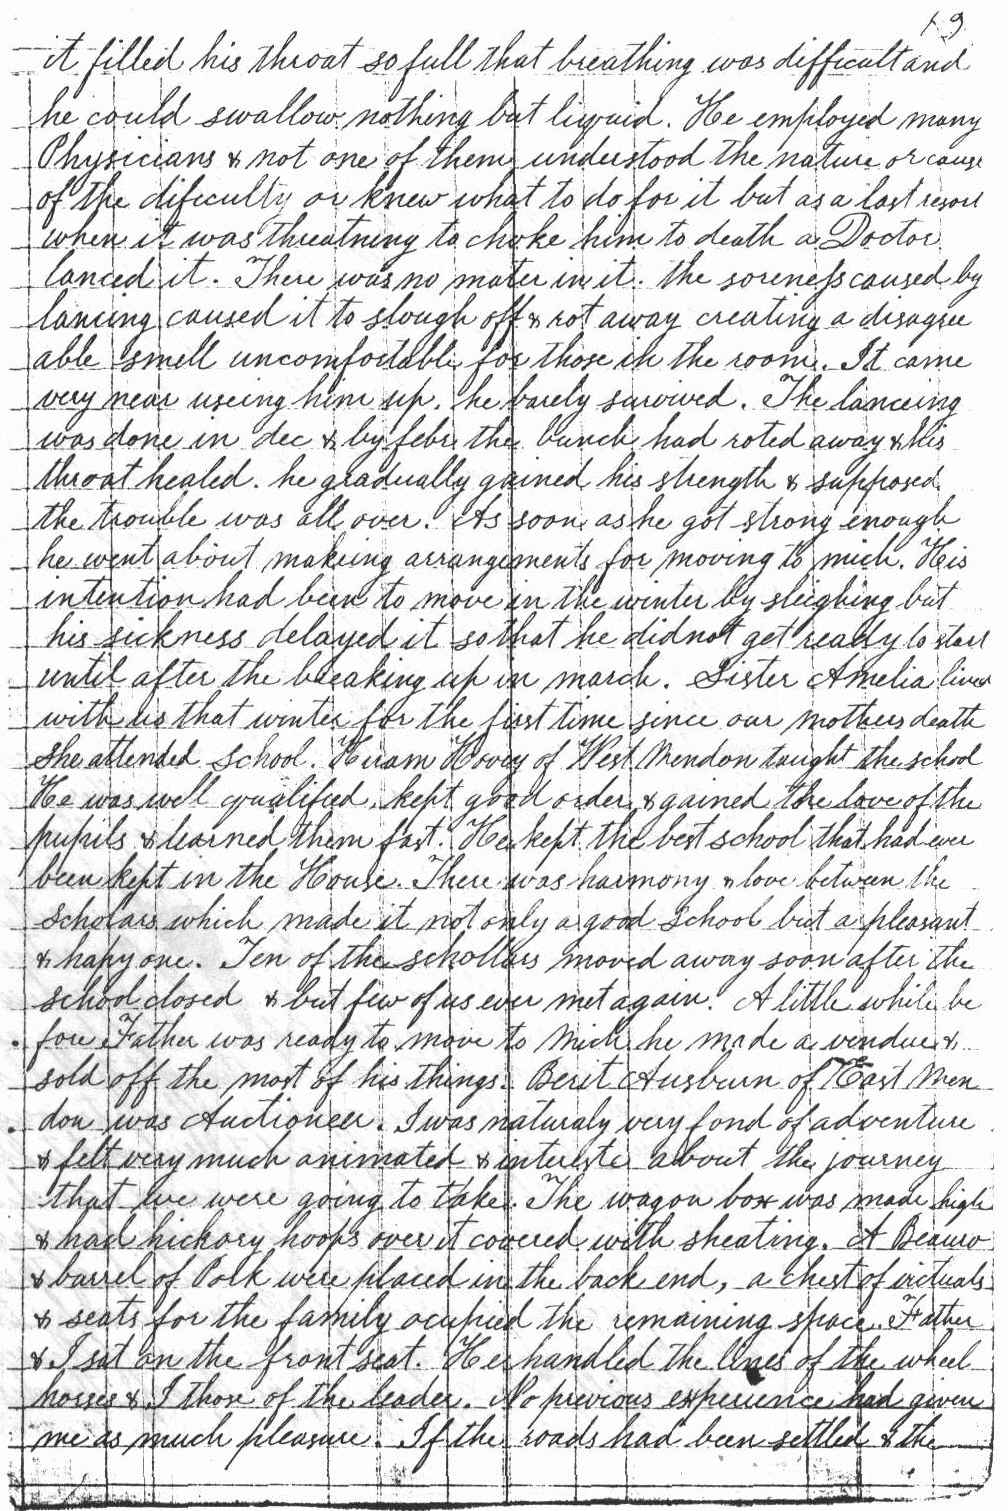 19
it filled his throat so full that breathing was difficult and
he could swallow nothing but liquid. He employed many
Physicians & not one of them understood the nature or cause
of the dificculty or knew what to do for it but as a last resort
when it was threatning to choke him to death a Doctor
lanced it. There was no mater in it. the soreness caused by
lancing caused it to slough off & rot away creating a disagree
able smell uncomfortable for those in the room. It came
very near useing him up. he barely survived. The lanceing
was done in dec & by febr the bunch had roted away & his
throat healed. he gradually gained his strength & supposed
the trouble was all over. As soon as he got strong enough
he went about makeing arrangements for moving to mich. His
intention had been to move in the winter by sleighing but
his sickness delayed it so that he did not get ready to start
until after the breaking up in march. Sister Amelia lived
with us that winter for the first time since our mothers death
she attended school. Hiram Hovey of West Mendon taught the school
He was well qualified, kept good order & gained the love of the
pupils & learned them fast. He kept the best school that had ever
been kept in the House. There was harmony & love between the
scholars which made it not only a good school but a pleasant
& hapy one. Ten of the schollars moved away soon after the
school closed & but few of us ever met again. A little while be
fore Father was ready to move to Mich he made a vendue &
sold off the most of his things. Beret Ausburn of East Men
don was Auctioneer. I was naturaly very fond of adventure
& felt very much animated & intereste about the journey
that we were going to take. The wagon box was made high
& had hickory hoops over it covered with sheating. A Beauro
& barrel of Pork were placed in the back end, a chest of victuals
& seats for the family ocupied the remaining space. Father
& I sat on the front seat. He handled the lines of the wheel
horses & I those of the leader. No previous experience had given
me as much pleasure. If the roads had been settled & the